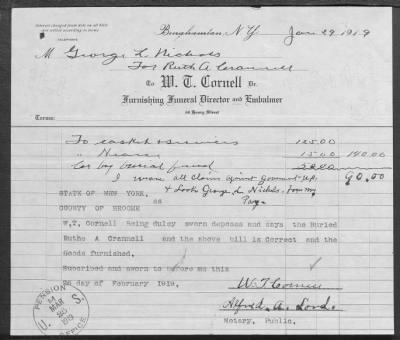 Interest charged from date on all bills
not settled according to terms
TELEPHONE
Binghamton, N.Y. Jan 29 1919
M George L Nichols
For Ruth A Crannell
To W. T. Cornell Dr.
Furnishing Funeral Director and Embalmer
Henry Street
Terms:
To casket & services 125.00
" Hearse 15.00 140.00
Cr by burial fund 50.00
I waive all claim against Government U.S. 90.00
& Look George L Nichols, for my
Pay-
STATE OF NEW YORK,
ss
COUNTY OF BROOME
W.T, Cornell Being duley sworn deposes and says the Buried
Ruthe A Crannell and the above bill is Correct and the
Goods furnished.
Subscribed and sworn to before me this
day of February 1919,
W T Cornell
Alfred. A. Lord.
Notary, Public.
PENSION OFFICE
U. S.
MAR
1919